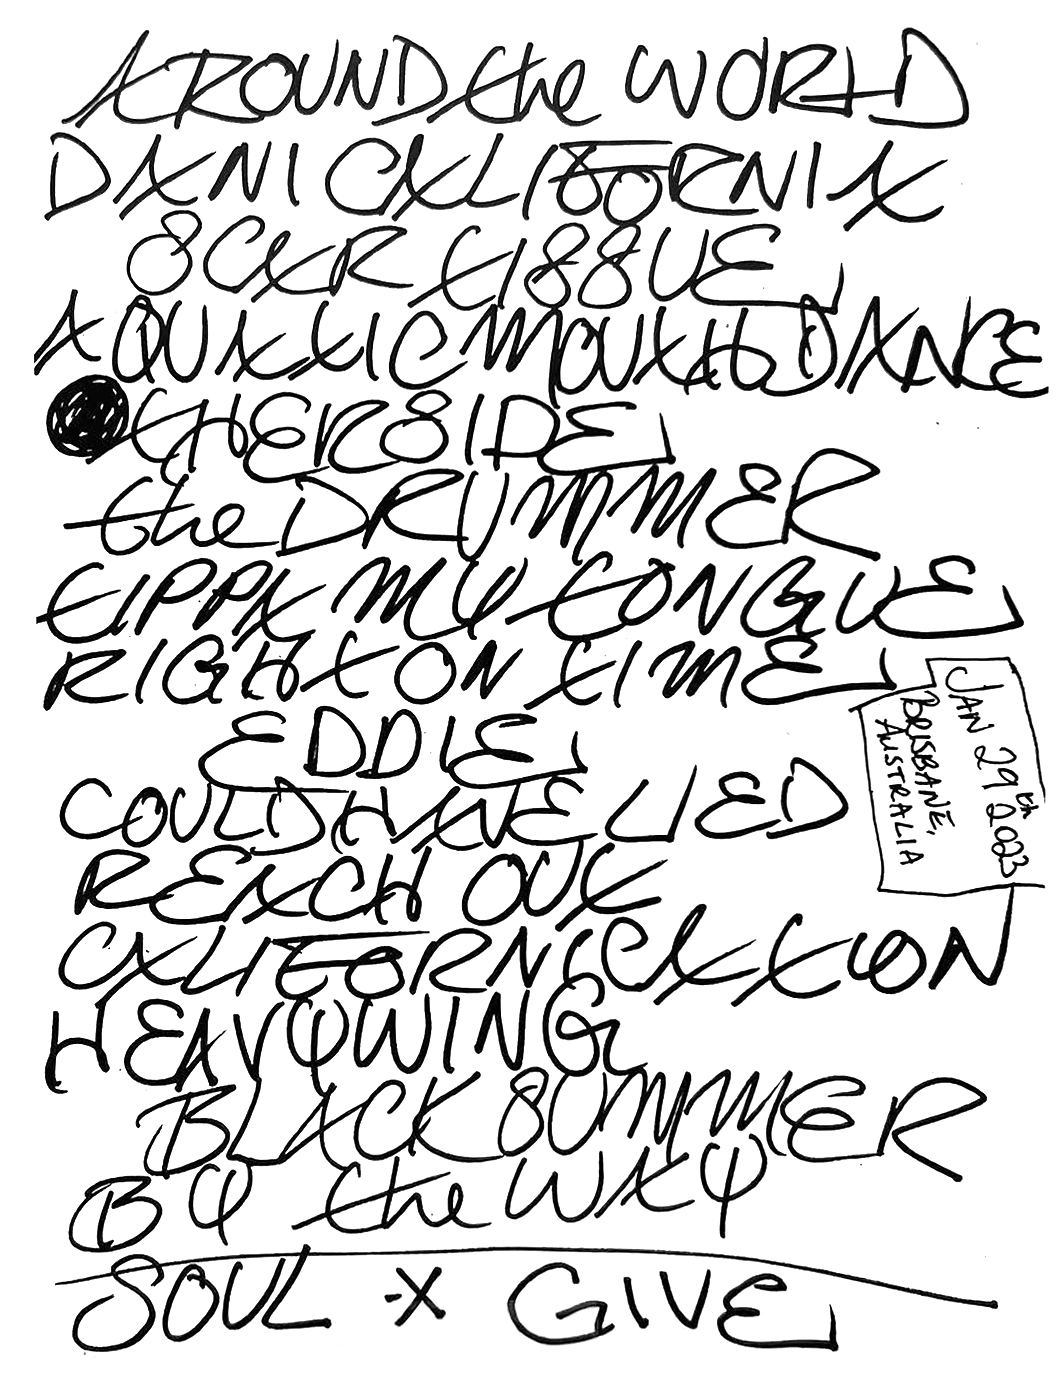 AROUND the WORLD
DANI CALIFORNIA
SCAR TISSUE
AQUATIC MOUTH DANCE
THE RSIDE
the DRUMMER
TIPPA MY TONGUE
RIGHT ON TIME
EDDIE
COULD HAVE LIED
REACH OUT
CALIFORNICATION
HEAVY WING
BLACK SUMMER
BY the WAY
SOUL X GIVE
JAN 29th 2023
BRISBANE,
AUSTRALIA